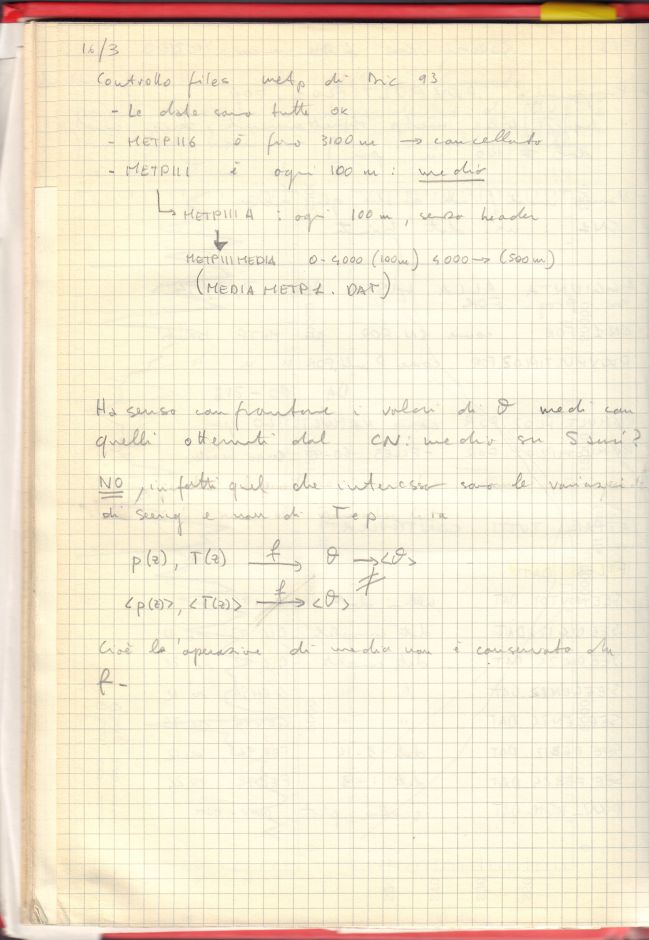 16/3
Controllo files metp di Dic 93
- Le date sono tutte ok
- METP116 è fino 3100 m → cancellato
- METP111 è ogni 100 m : medio
↳ METP111A : ogni 100 m, senza header
METP111MEDIA 0-4000 (100m) 4000→ (500m)
(MEDIA METP1.DAT)
Ha senso confrontare i valori di ϑ medi con
quelli ottenuti dal CN: medio su 5 anni?
NO, infatti quel che interessa sono le variazioni
di seeing e non di T e p
p(z), T(z) f→ ϑ → <ϑ>
≠
<p(z)>, <T(z)> f→ <ϑ>
Cioè l'operazione di media non è conservata da
f -